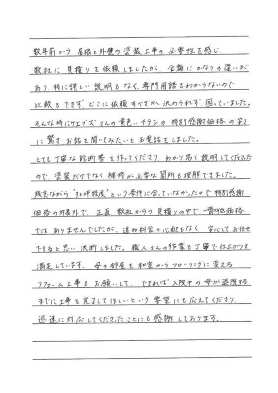 数年前から屋根と外壁の塗装工事の必要性を感じ
数社に見積りを依頼しましたが、金額にかなりの違いが
あり特に詳しい説明もなく、専門用語もわからないので
比較もできず、どこに依頼すべきか決められず困っていました。
そんな時に さんの黄色いチラシの特別感謝価格の文字
に驚きお話を聞いてみたいとお電話をしました。
とても丁寧な診断書を作ってくださり わかり易く説明してくださった
ので塗装だけでなく補修が必要な箇所も理解できました。
残念ながら という条件に合っていなかったので特別感謝
価格の対象外で、正直 数社からの見積りの中で一番低価格
ではありませんでしたが、追加料金の心配もなく安心してお任せ
できると思い決断しました。職人さんの作業も丁寧で仕上がりも
満足しています。母の部屋を和室からフローリングに変える
リフォーム工事もお願いして、できれば入院中の母が退院する
までに工事を完了してほしいという要望にも応えてくださり
迅速に対応してくださったことにも感謝しております。